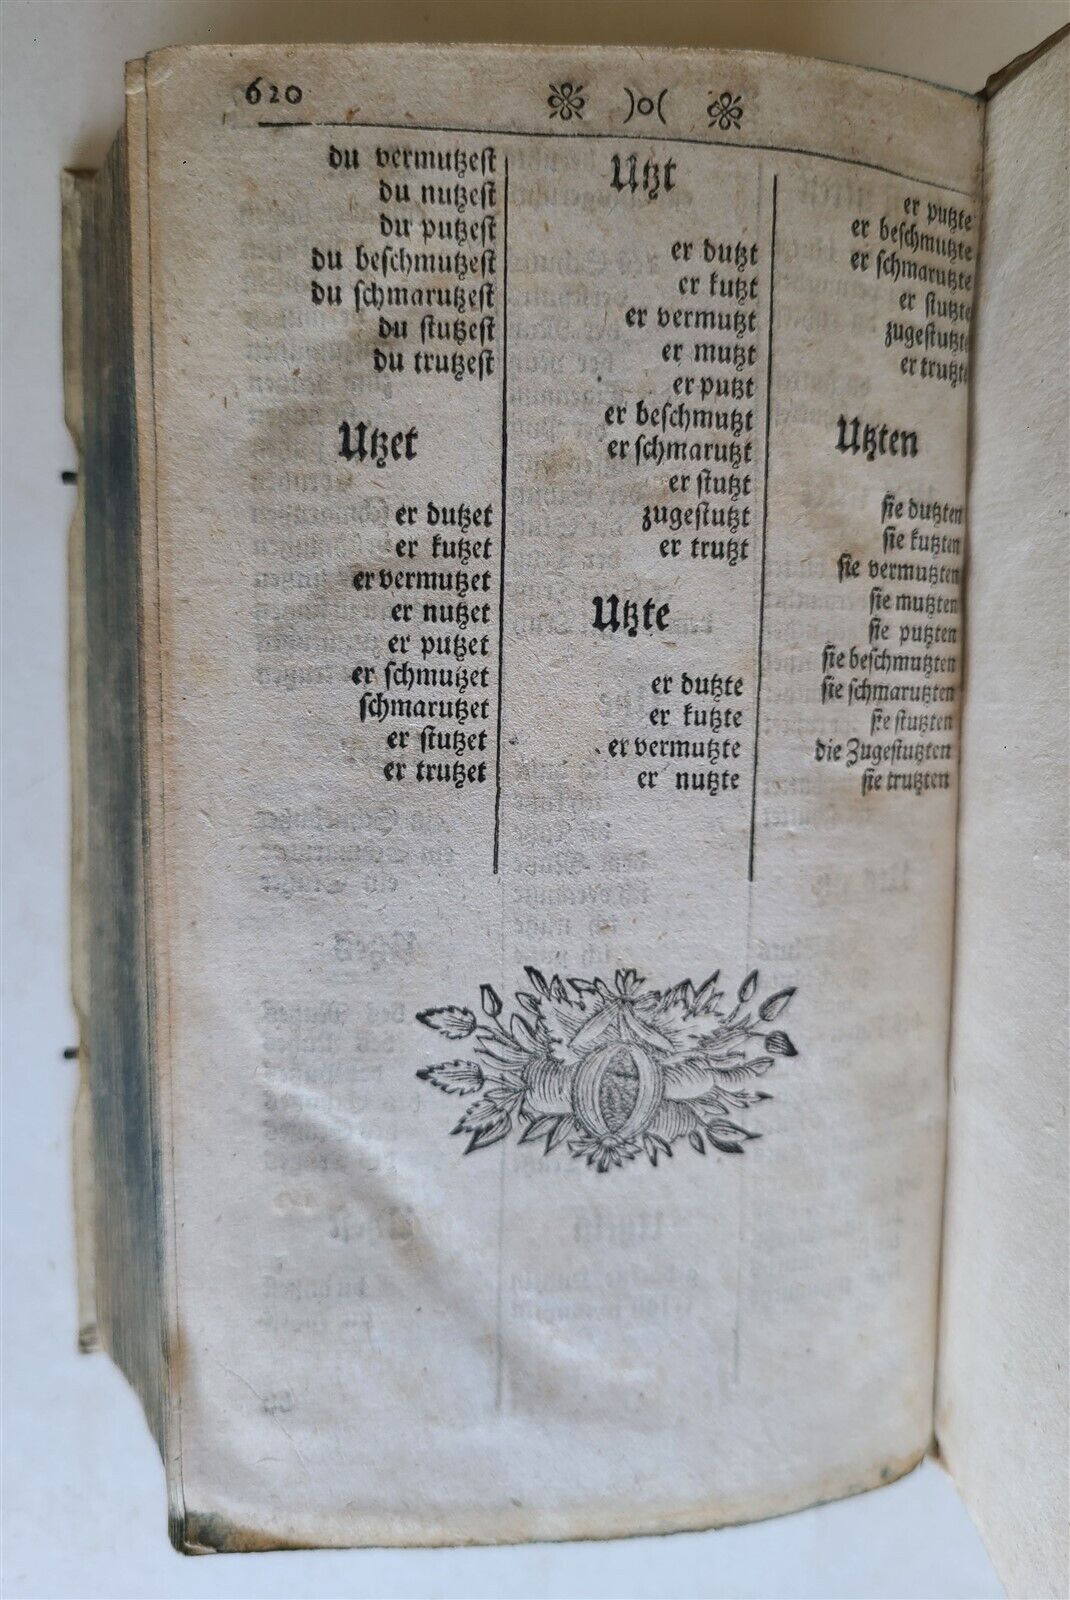 620 )o(
du vermutzest
du nutzest
du putzest
du beschmutzest
du schmarutzest
du stutzest
du trutzest
Utzet
er dutzet
er kutzet
er vermutzet
er nutzet
er putzet
er schmutzet
schmarutzet
er stutzet
er trutzet
Utzt
er dutzt
er kutzt
er vermutzt
er mutzt
er putzt
er beschmutzt
er schmarutzt
er stutzt
zugestutzt
er trutzt
Utzte
er dutzte
er kutzte
er vermutzte
er nutzte
er putzte
er beschmutzte
er schmarutzte
er stutzte
zugestutzte
er trutzte
Utzten
sie dutzten
sie kutzten
sie vermutzten
sie mutzten
sie putzten
sie beschmutzten
sie schmarutzten
sie stutzten
die Zugestutzten
sie trutzten